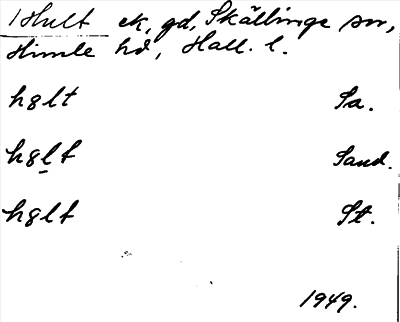 1 Hult ek, gd, Skällinge sn,
Himle hd, Hall. l.
hɞlt Sa.
hɞḻt Sand.
hɞlt St.
1949.